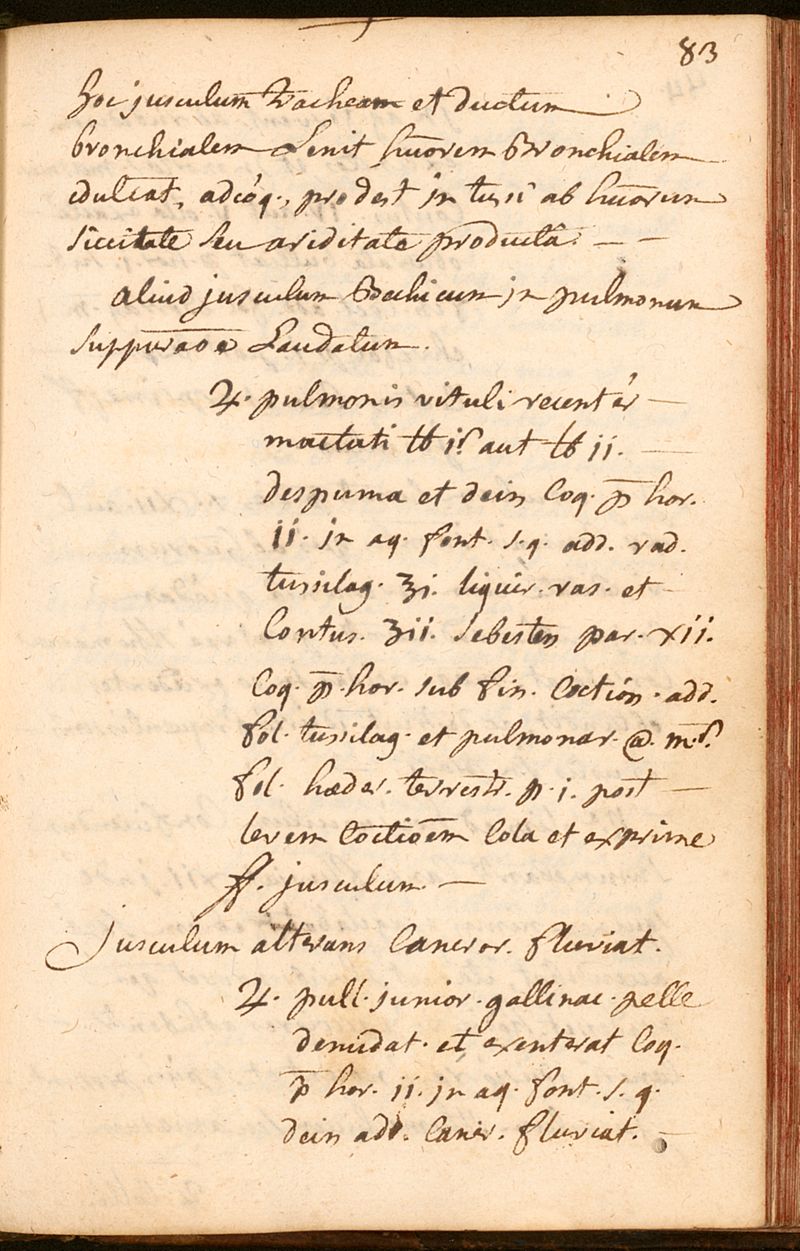 83
hoc jusculum Tracheam et ductum
bronchialem Lenit humorem Bronchialem
edulcat, adeoq., prodest in tussi ab humorum
siccitate seu ariditate productâ. — —
aliud jusculum Bechicum jn pulmonum
suppuraōe Laudatum.
♃. pulmonis vituli recentèr —
mactati ℔ jſ aut ℔ jj. —
despuma et dein Coq. p̄ hor.
ii. jn aq. font. s.q. add. rad.
tussilag. ʒi. liquir. ras. et
Contus. ʒii. Sebesten par. xii.
Coq. p̄. hor. sub fin. Coction. add.
fol. tussilag. et pulmonar. @. m.ſ.
fol. hæder. terrestr. p. j. post —
levem Coctioēm Cola et exprime
ff. jusculum. —
Jusculum alterans Cancror. fluviat.
♃. pull. junior. gallinac. pelle
denudat. et, exenterat Coq.
p̄ hor. ii. jn aq. font. s. q.
dein add. Cancr. fluviat. —